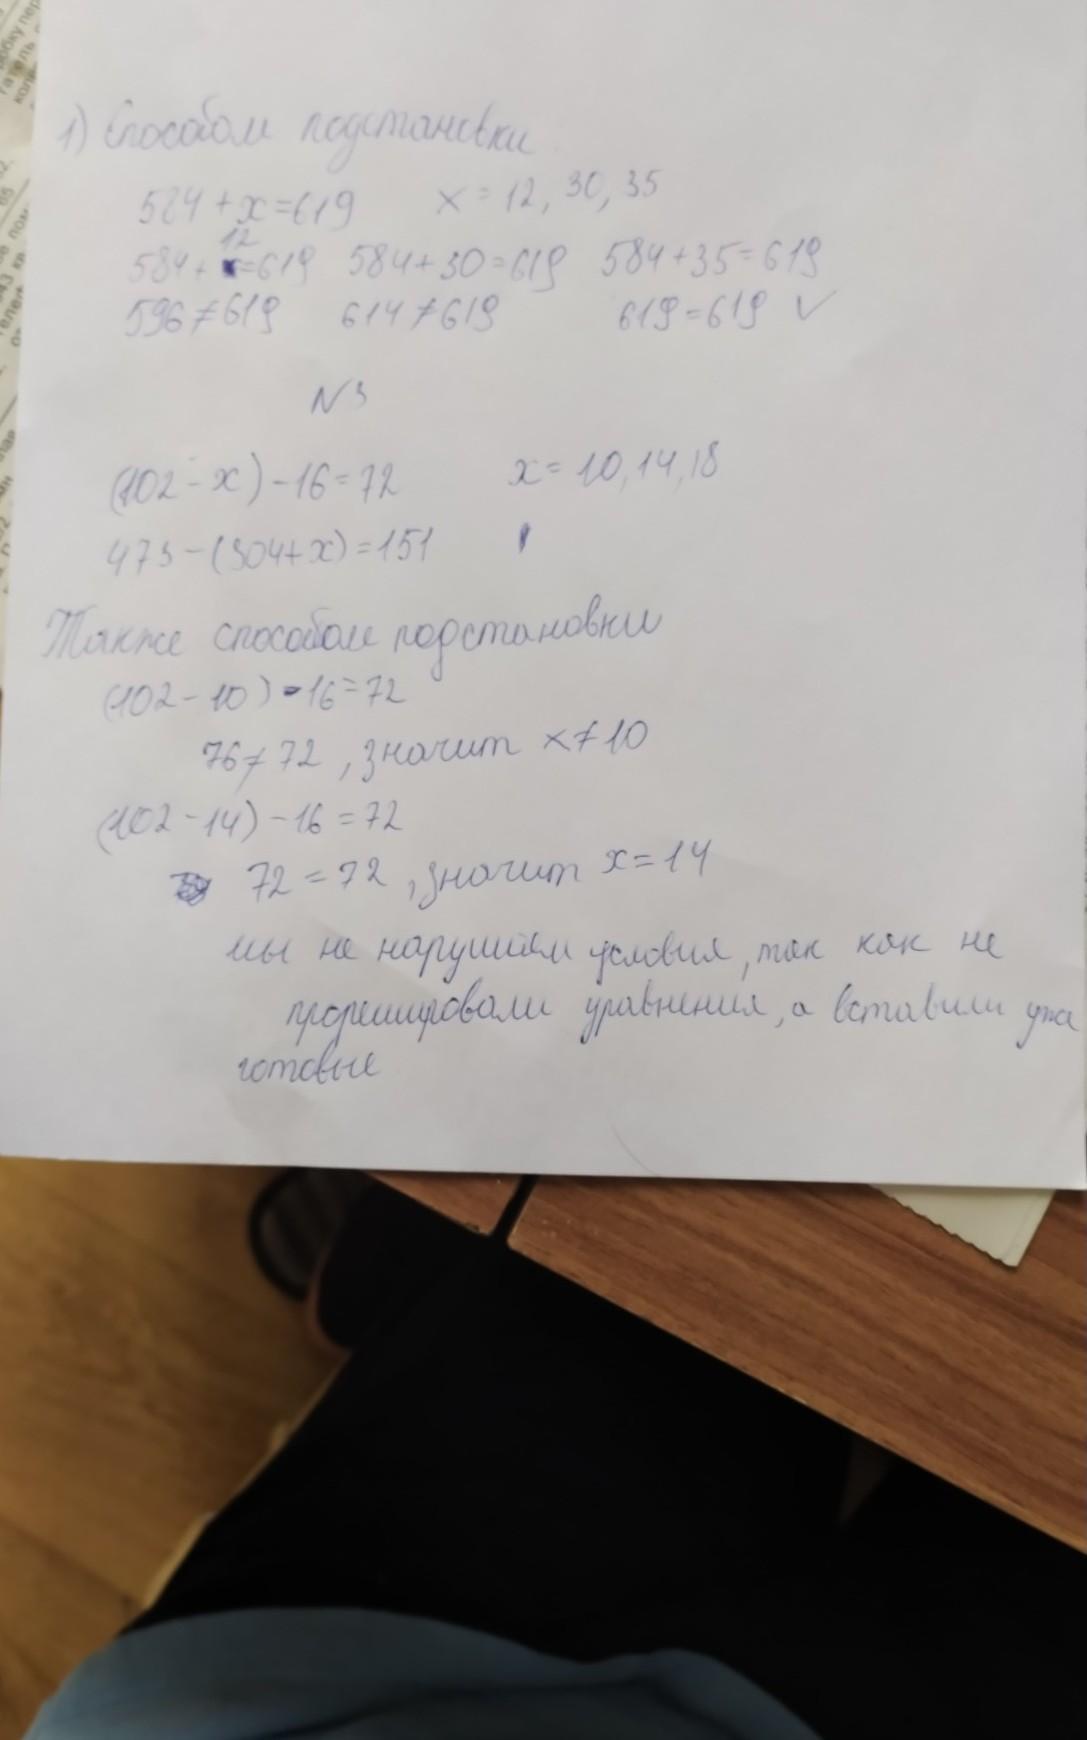 1) Способом подстановки
584 + x = 619 x = 12, 30, 35
584 + 12 = 619 584 + 30 = 619 584 + 35 = 619
596 ≠ 619 614 ≠ 619 619 = 619 ✓
N3
(102 - x) - 16 = 72 x = 10, 14, 18
473 - (304 + x) = 151
Также способом подстановки
(102 - 10) - 16 = 72
76 ≠ 72, значит x ≠ 10
(102 - 14) - 16 = 72
72 = 72, значит x = 14
мы не нарушаем условия, так как не
прорешировали уравнения, а вставили уже
готовые